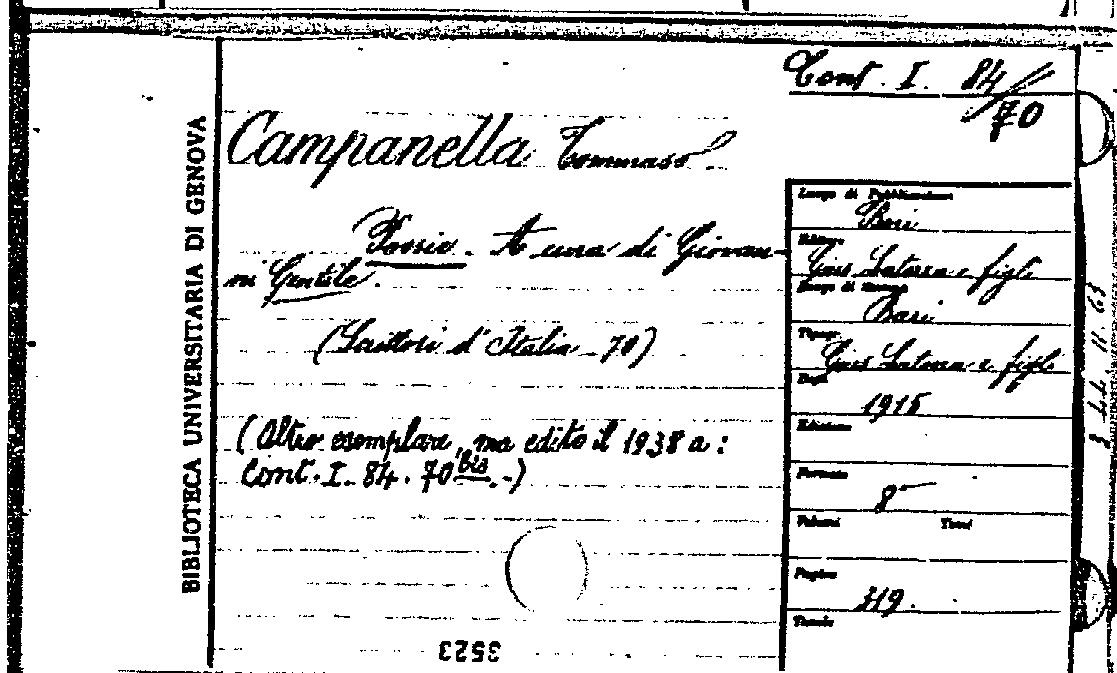 Cont. I. 84/70
BIBLIOTECA UNIVERSITARIA DI GENOVA
Campanella Tommaso
Poesie. A cura di Giovan-
ni Gentile.
(Scrittori d'Italia - 70)
(Altro esemplare, ma edito il 1938 a:
Cont. I. 84. 70 bis. -)
3523
Luogo di Pubblicazione
Bari
Editore
Gius Laterza e figli
Luogo di stampa
Bari
Tipogr.
Gius Laterza e figli
Data
1915
Edizione
Formato
8°
Volumi Tomi
Pagine
319.
Tavole